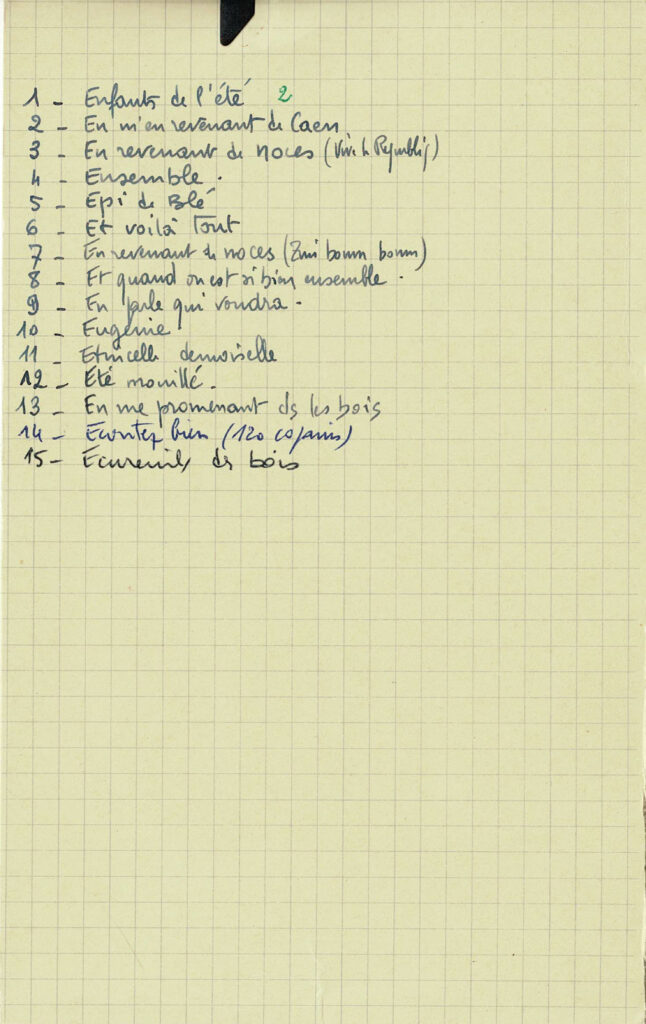 1 - Enfants de l'été 2
2 - En m'en revenant de Caen
3 - En revenant de noces (Vive la Républiq)
4 - Ensemble.
5 - Epi de Blé
6 - Et voilà Tout
7 - En revenant de noces (Zim boum boum)
8 - Et quand on est si bien ensemble.
9 - En parle qui voudra.
10 - Eugénie
11 - Etincelle demoiselle
12 - Eté mouillé.
13 - En me promenant ds les bois
14 - Ecoutez bien (120 copains)
15 - Ecureuils des bois